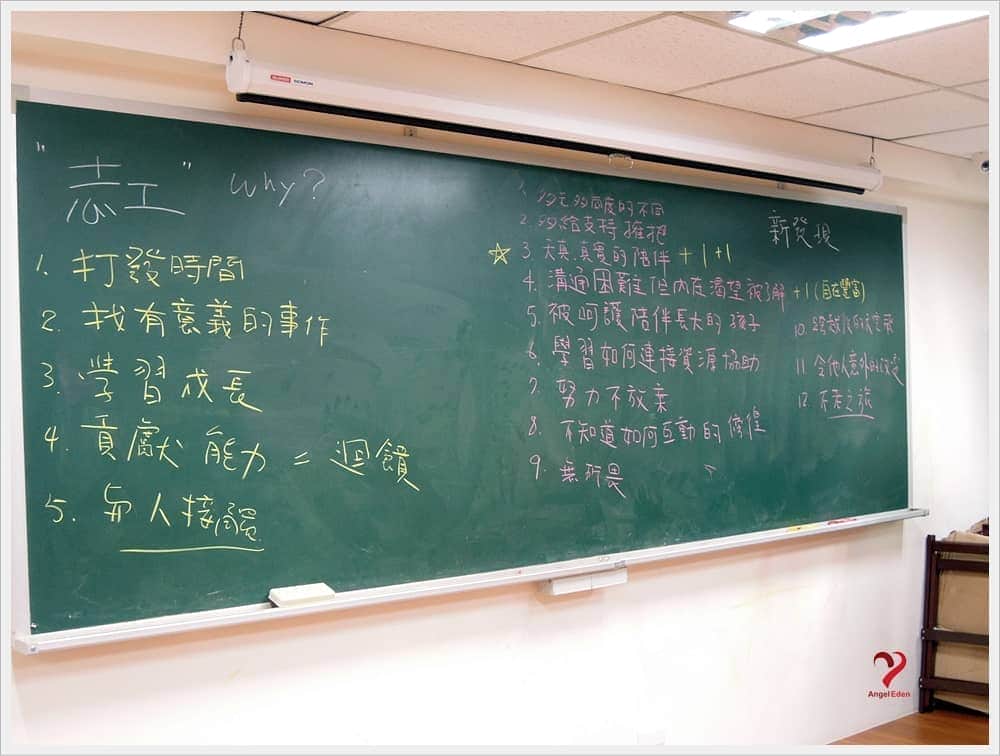 "志工" why?
1. 打發時間
2. 找有意義的事作
3. 學習成長
4. 貢獻能力 = 迴饋
5. 與人接觸
新發現
1. 多元多向度的不同
2. 多給支持擁抱
☆ 3. 天真.真實的陪伴 +1+1
4. 溝通困難但內在渴望被了解 +1(自在豐富)
5. 被呵護陪伴長大的孩子
6. 學習如何連接資源協助
7. 努力不放棄
8. 不知道如何互動的徬徨
9. 無所畏
10.
11. 令他人意外的
12. 不老之旅
Angel Eden